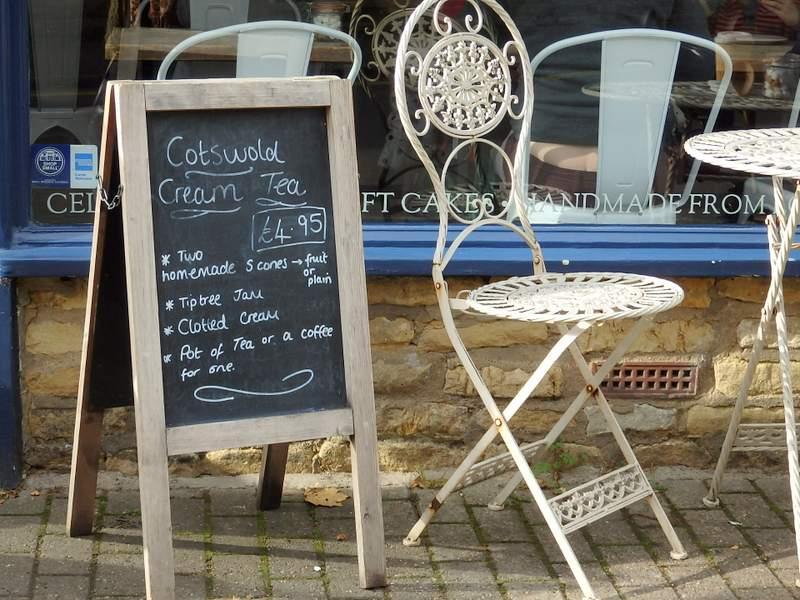 Cotswold
Cream Tea
£4.95
* Two
homemade Scones → fruit
or
plain
* Tiptree Jam
* Clotted Cream
* Pot of Tea or a coffee
for one.
SHOP
SMALL
CEL
FT CAKES · HANDMADE FROM